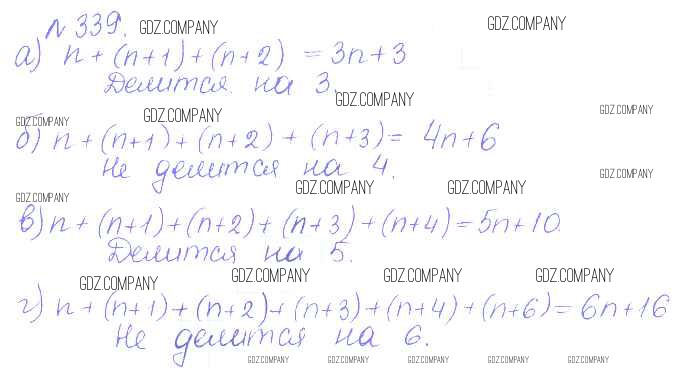 № 339. GDZ.COMPANY GDZ.COMPANY
а) n + (n+1) + (n+2) = 3n+3
Делится на 3.
GDZ.COMPANY
GDZ.COMPANY GDZ.COMPANY GDZ.COMPANY
б) n + (n+1) + (n+2) + (n+3) = 4n+6
Не делится на 4.
GDZ.COMPANY
GDZ.COMPANY GDZ.COMPANY GDZ.COMPANY
в) n + (n+1) + (n+2) + (n+3) + (n+4) = 5n+10.
Делится на 5.
GDZ.COMPANY GDZ.COMPANY GDZ.COMPANY GDZ.COMPANY
г) n + (n+1) + (n+2) + (n+3) + (n+4) + (n+6) = 6n+16
Не делится на 6.
GDZ.COMPANY GDZ.COMPANY GDZ.COMPANY GDZ.COMPANY GDZ.COMPANY